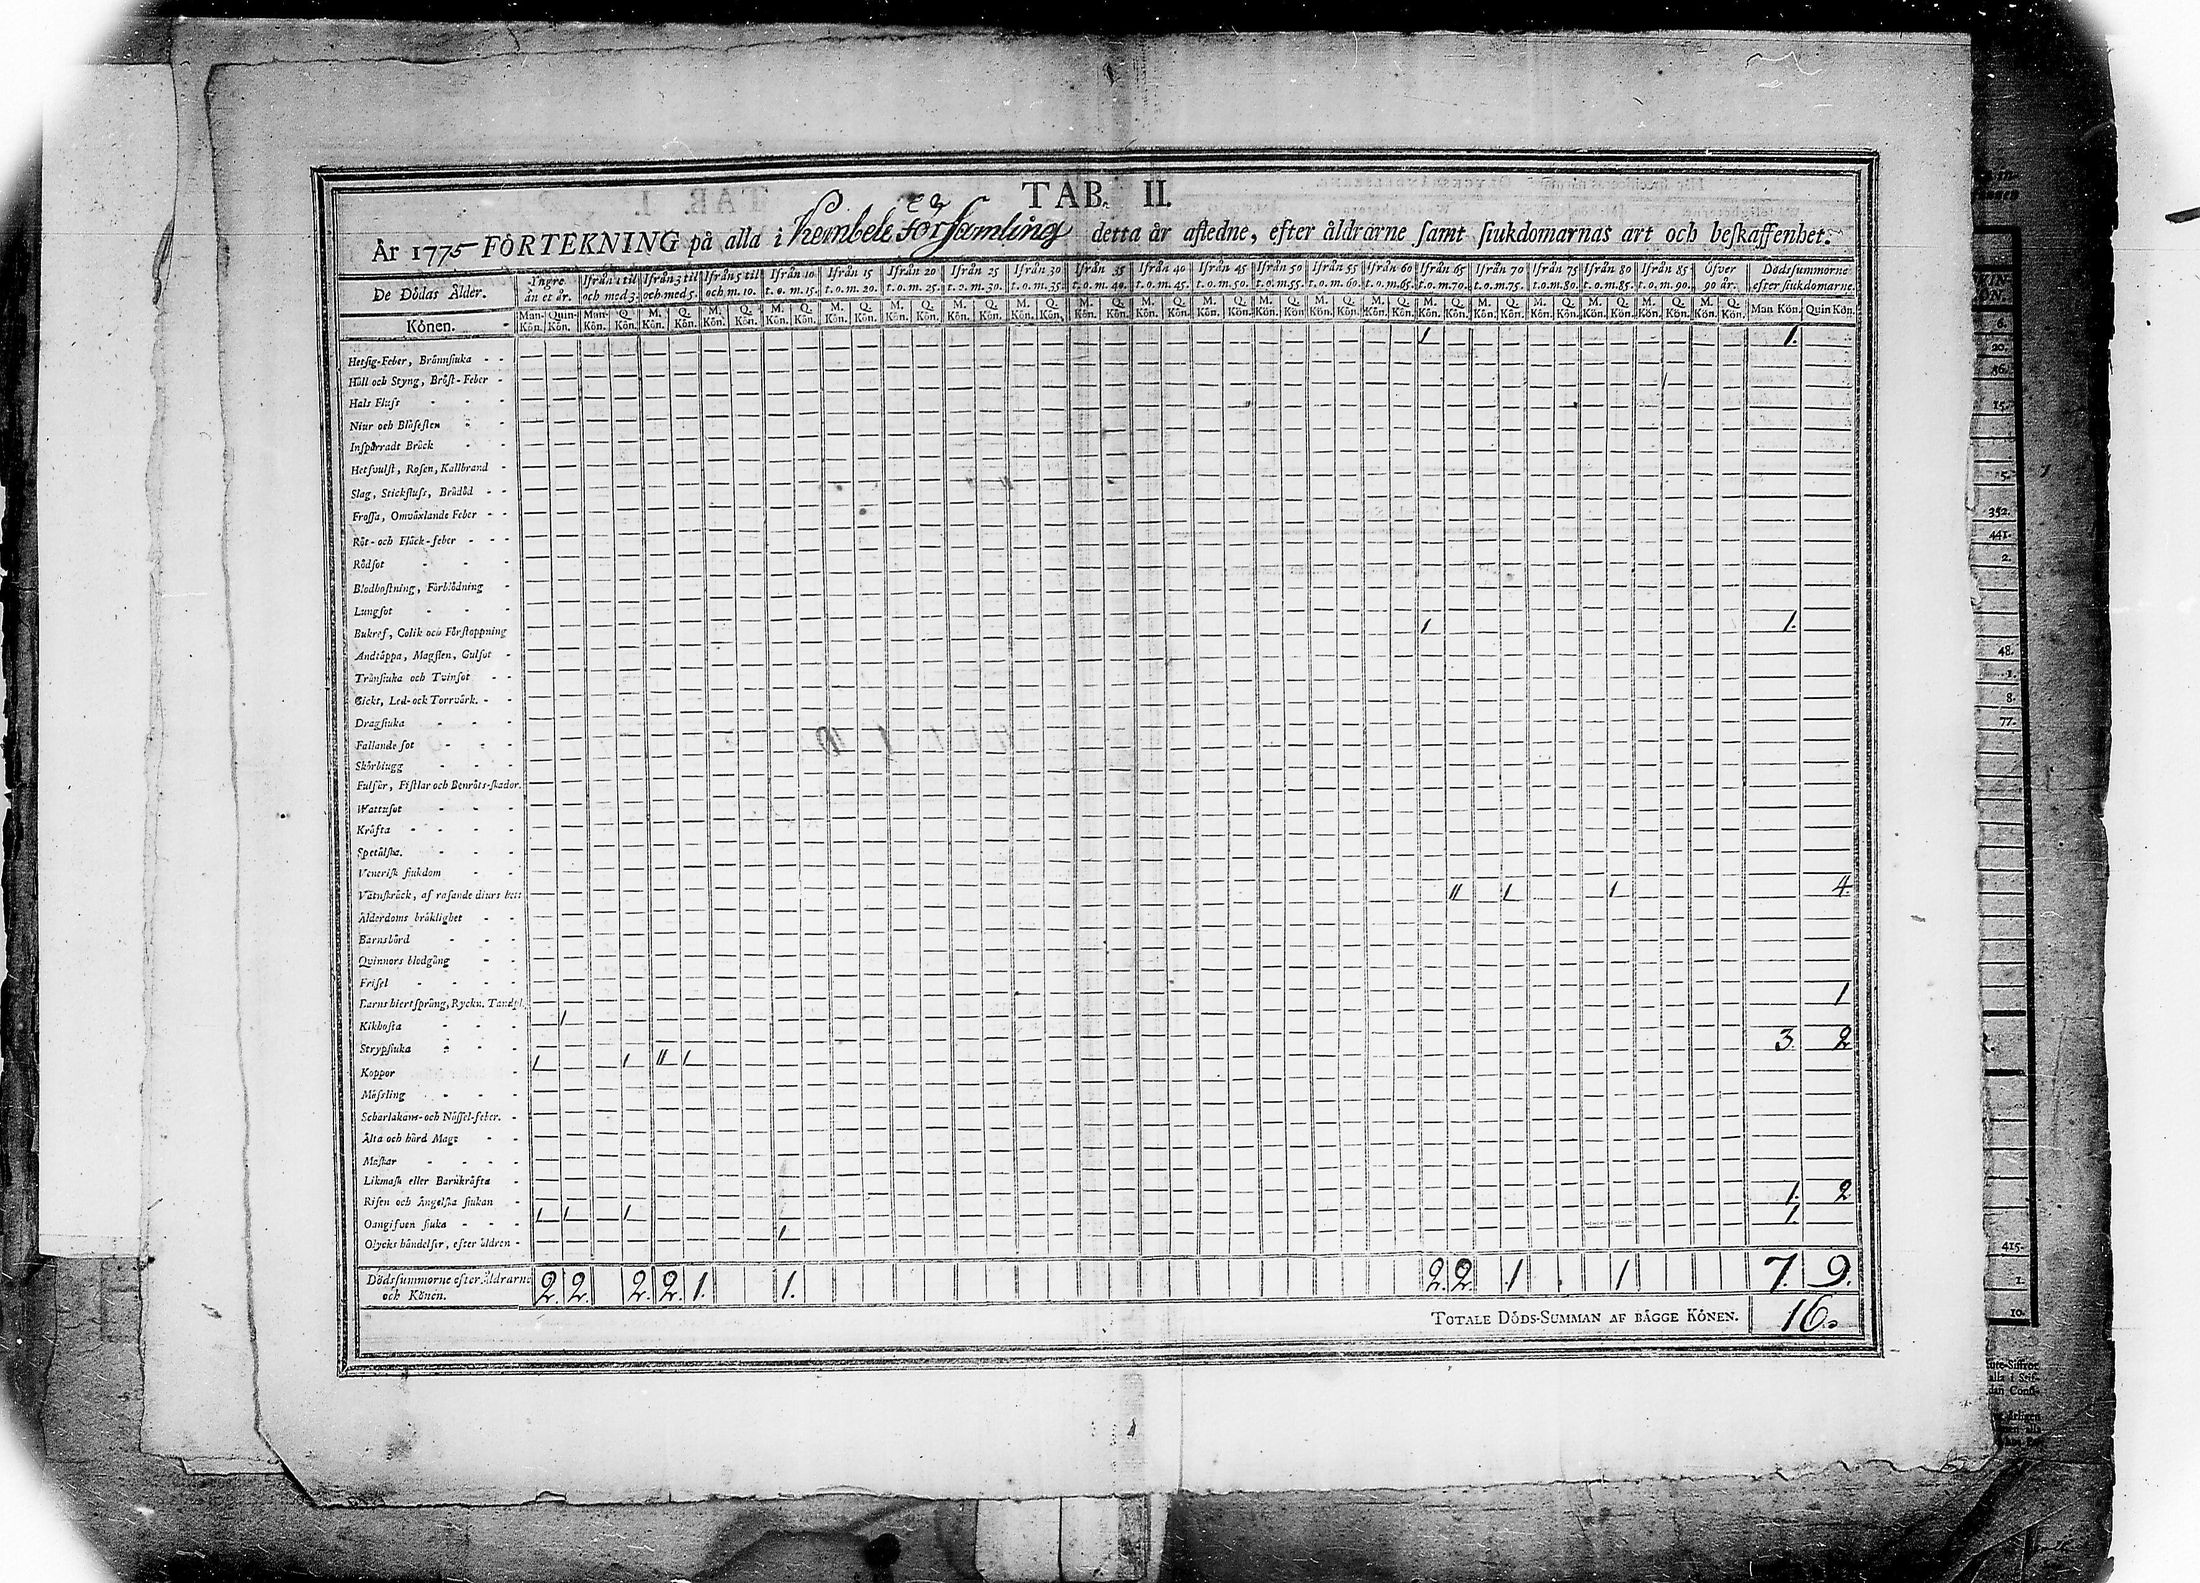 TAB. II.
År 1775 FÖRTEKNING på alla i Kembele Församling detta år afledne, efter åldrarne samt siukdomarnas art och beskaffenhet.
De Dödas Ålder. Yngre än et år. Ifrån 1 til och med 3. Ifrån 3 til och med 5. Ifrån 5 til och m. 10. Ifrån 10 t. o. m. 15. Ifrån 15 t. o. m. 20. Ifrån 20 t. o. m. 25. Ifrån 25 t. o. m. 30. Ifrån 30 t. o. m. 35. Ifrån 35 t. o. m. 40. Ifrån 40 t. o. m. 45. Ifrån 45 t. o. m. 50. Ifrån 50 t. o. m. 55. Ifrån 55 t. o. m. 60. Ifrån 60 t. o. m. 65. Ifrån 65 t. o. m. 70. Ifrån 70 t. o. m. 75. Ifrån 75 t. o. m. 80. Ifrån 80 t. o. m. 85. Ifrån 85 t. o. m. 90. Öfver 90 år. Dödssummorne efter siukdomarne.
Könen. Man-Kön. Quin-Kön. Man-Kön. Q. Kön. M. Kön. Q. Kön. M. Kön. Q. Kön. M. Kön. Q. Kön. M. Kön. Q. Kön. M. Kön. Q. Kön. M. Kön. Q. Kön. M. Kön. Q. Kön. M. Kön. Q. Kön. M. Kön. Q. Kön. M. Kön. Q. Kön. M. Kön. Q. Kön. M. Kön. Q. Kön. M. Kön. Q. Kön. M. Kön. Q. Kön. M. Kön. Q. Kön. M. Kön. Q. Kön. M. Kön. Q. Kön. M. Kön. Q. Kön. M. Kön. Q. Kön. Man Kön. Quin Kön.
Hetsig-Feber, Brännsiuka 1 1.
Håll och Styng, Bröst-Feber
Hals Fluss
Niur och Blåsesten
Inspärradt Bråck
Hetsvulst, Rosen, Kallbrand
Slag, Stickfluss, Brådöd
Frossa, Omväxlande Feber
Röt- och Fläck-feber
Rödsot
Blodhostning, Förblödning
Lungsot
Bukref, Colik och Förstoppning 1 1.
Andtäppa, Magsten, Gulsot
Trånsiuka och Tvinsot
Gickt, Led- ock Torrvärk.
Dragsiuka
Fallande sot
Skörbiugg
Fulsår, Fistlar och Benröts-skador.
Wattusot
Kräfta
Spetälska.
Venerisk siukdom
Vätuskräck, af rasande diurs bett
Ålderdoms bräklighet 11 1 1 4.
Barnsbörd
Qvinnors blodgång
Frisel
Barns hiertsprång, Ryckn. Tandpl.
Kikhosta 1 1
Strypsiuka
Koppor 1 1 11 1 3. 2
Mässling
Scharlakans- och Nässel-feber.
Älta och hård Mage
Maskar
Likmask eller Barnkräfta
Risen och Ängelska siukan
Oangifven siuka 1 1 1 1. 2
Olyckshändelser, efter åldren 1 1.
Dödssummorne efter Åldrarne och Könen. 2. 2. 2. 2. 1. 1. 2. 2. 1 1 7. 9.
TOTALE DÖDS-SUMMAN AF BÄGGE KÖNEN. 16.
6.
20.
86.
15.
5.
352.
441.
2.
48.
1.
8.
77.
415.
1.
10.